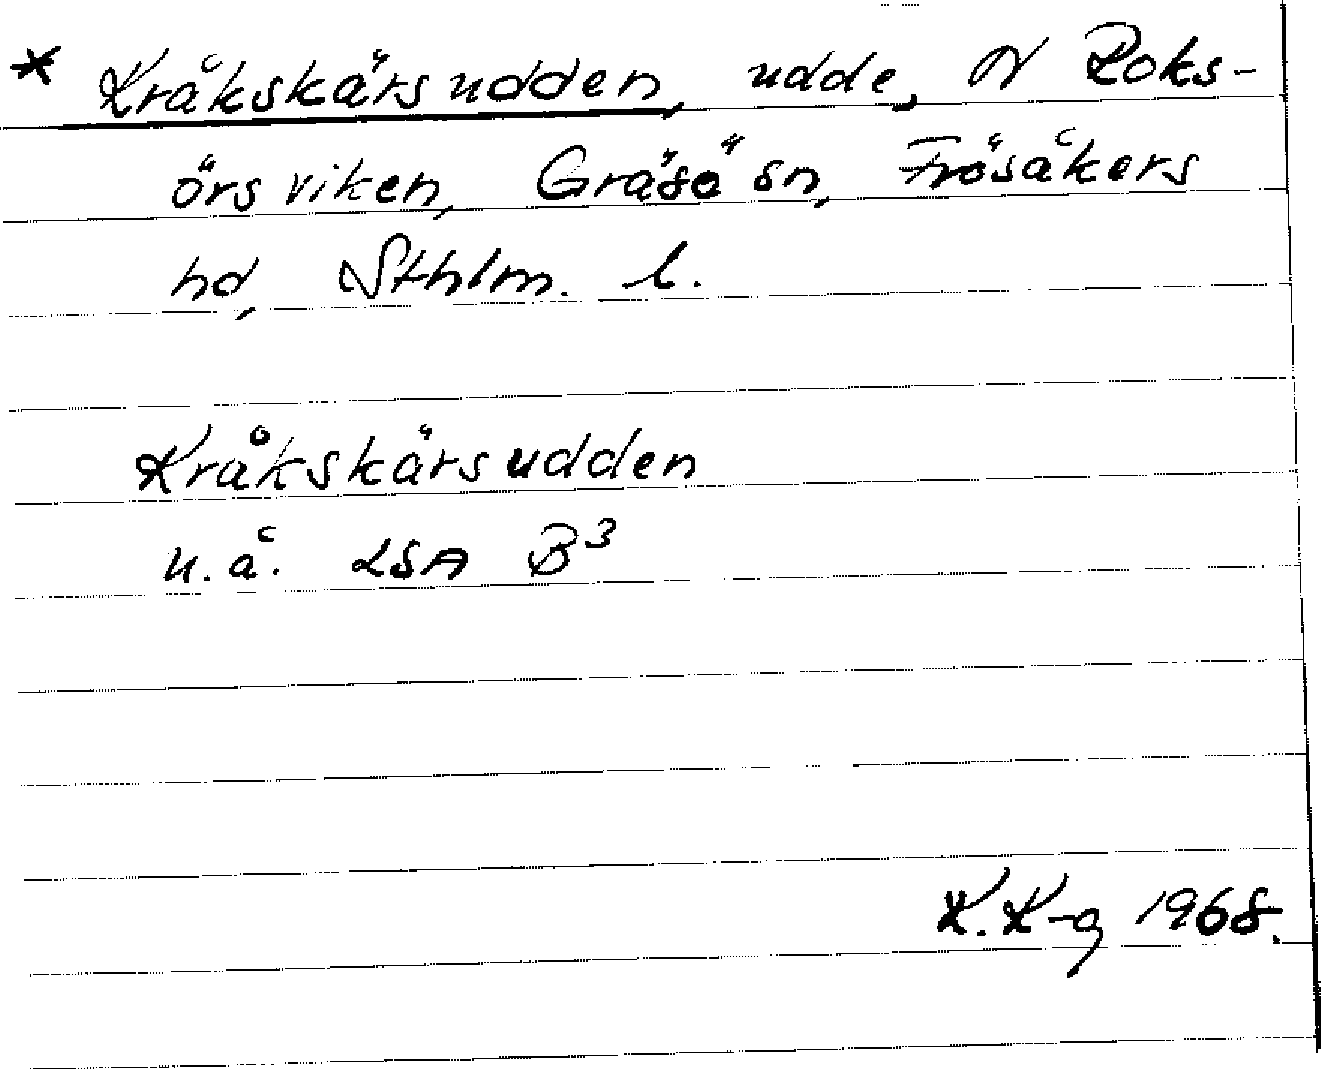 * Kråkskärsudden, udde, N Roks-
örsviken, Gräsö sn, Frösåkers
hd, Sthlm. l.
Kråkskärsudden
u.å. LSA B³
K.K-g 1968.